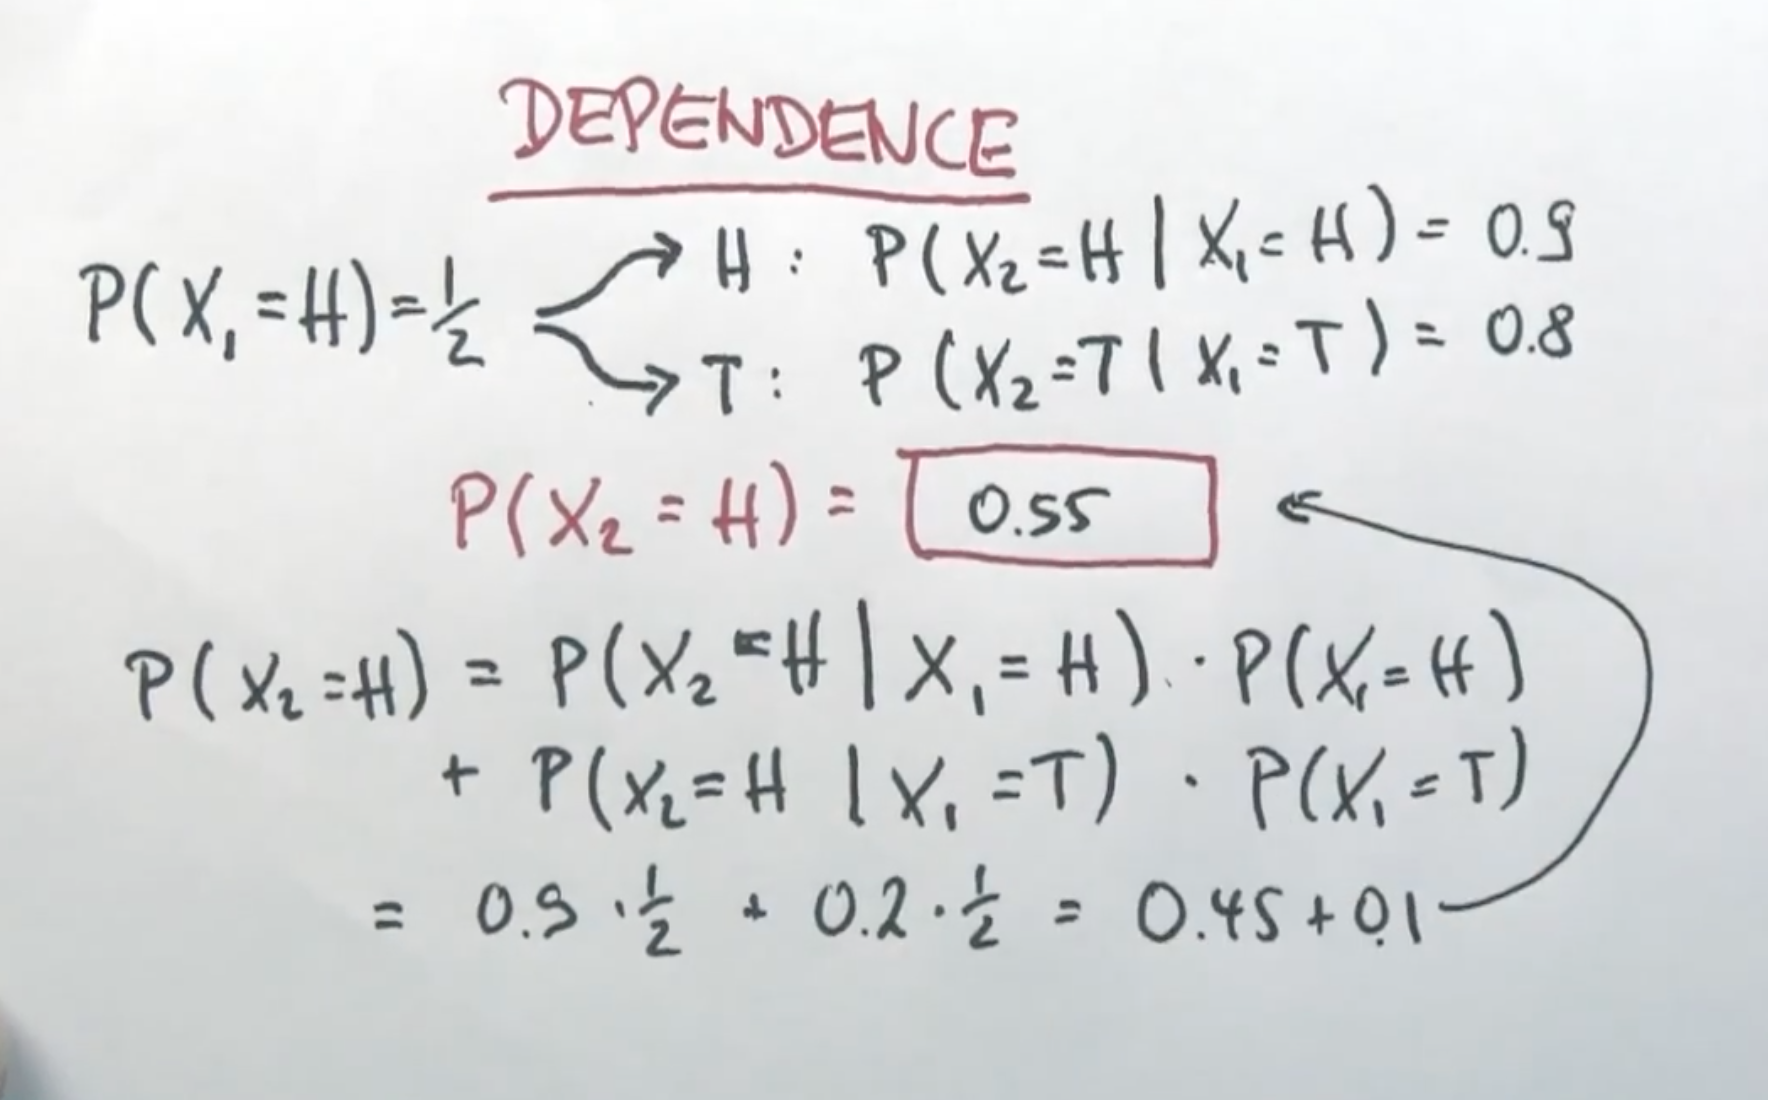 DEPENDENCE
P(X₁=H)=½ → H : P(X₂=H | X₁=H) = 0.9
→ T : P(X₂=T | X₁=T) = 0.8
P(X₂ = H) = 0.55
P(X₂=H) = P(X₂=H | X₁=H) · P(X₁=H)
+ P(X₂=H | X₁=T) · P(X₁=T)
= 0.9 · ½ + 0.2 · ½ = 0.45 + 0.1